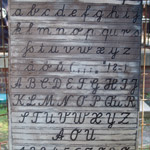 a b c d e f g h i j
k l m n o p qu r s
t u v w x y z
ä ö ü
A B C D E F G H I J
K L M N O P Qu R
S T U V W X Y Z
Ä Ö Ü